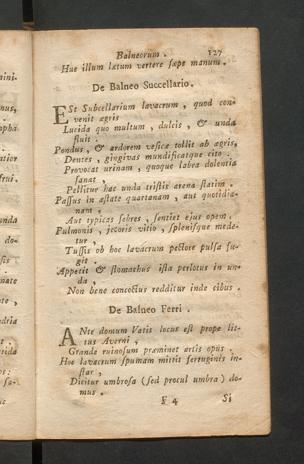 Balneorum. 127
Huc illum lætum vertere sæpe manum.
De Balneo Succellario.
ESt Subcellarium lavacrum, quod con-
venit agris
Lucida quo multum, dulcis, & unda
fluit.
Pondus, & ardorem vesicæ tollit ab agris,
Dentes, gingivas mundificatque cito.
Provocat urinam, quoque labra dolentia
sanat,
Pellitur hac unda tristis arena statim.
Passus in æstate quartanam, aut quotidia-
nam,
Aut typicas febres, sentiet ejus opem.
Pulmonis, jecoris vitio, splenisque mede-
tur,
Tussis ob hoc lavacrum pectore pulsa fu-
git.
Appetit & stomachus ista perlotus in un-
da,
Non bene concoctus redditur inde cibus.
De Balneo Ferri.
ANte domum Vatis locus est prope lit-
tus Averni,
Grande ruinosum præminet artis opus.
Hoc lavacrum spumam mittit ferruginis in-
star,
Dicitur umbrosa (sed procul umbra) do-
mus.
F 4 Si